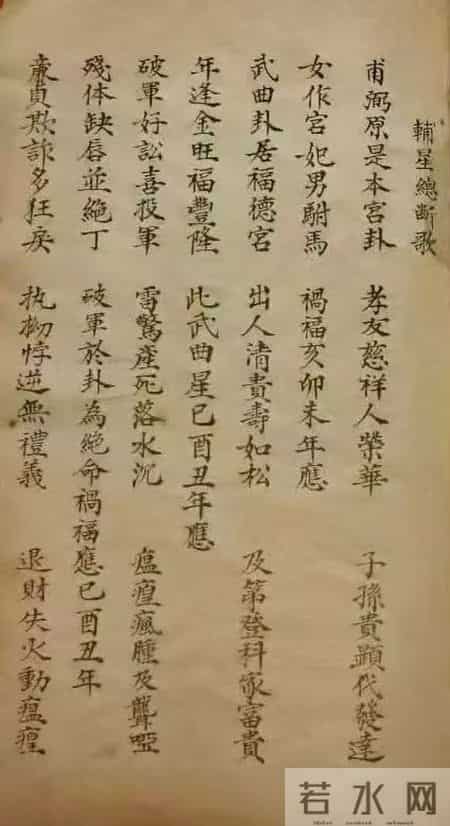 輔星總斷歌
甫弼原是本宮卦 孝友慈祥人榮華 子孫貴顕代發達
女作宮妃男駙馬 禍福亥卯未年應
武曲卦居福德宮 出人清貴壽如松 及第登科家富貴
年逢金旺福豐隆 此武曲星巳酉丑年應
破軍好訟喜投軍 雷驚產死落水沉 瘟𤶊瘋腫及聾啞
殘体缺唇並絶丁 破軍於卦為絶命禍福應巳酉丑年
亷貞欺詐多狂戾 执拗悖逆無禮義 退財失火動瘟𤶊
若水网